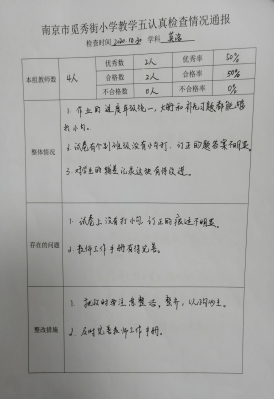 南京市觅秀街小学教学五认真检查情况通报
检查时间 2020.10.30 学科 英语
本组教师数 4人 优秀数 2人 优秀率 50%
合格数 2人 合格率 50%
不合格数 0人 不合格率 0%
整体情况
1. 作业的进度年级统一,大部和补充习题都能
打小勾。
2. 试卷有个别班级没有小勾打,订正的题答案不明显。
3. 对学生的
存在的问题
1. 试卷上没有打小勾 订正的痕迹不明显。
2. 教师工作手册有待完善。
整改措施
1. 批改时要注意整洁、整齐,
2. 及时完善教师工作手册。